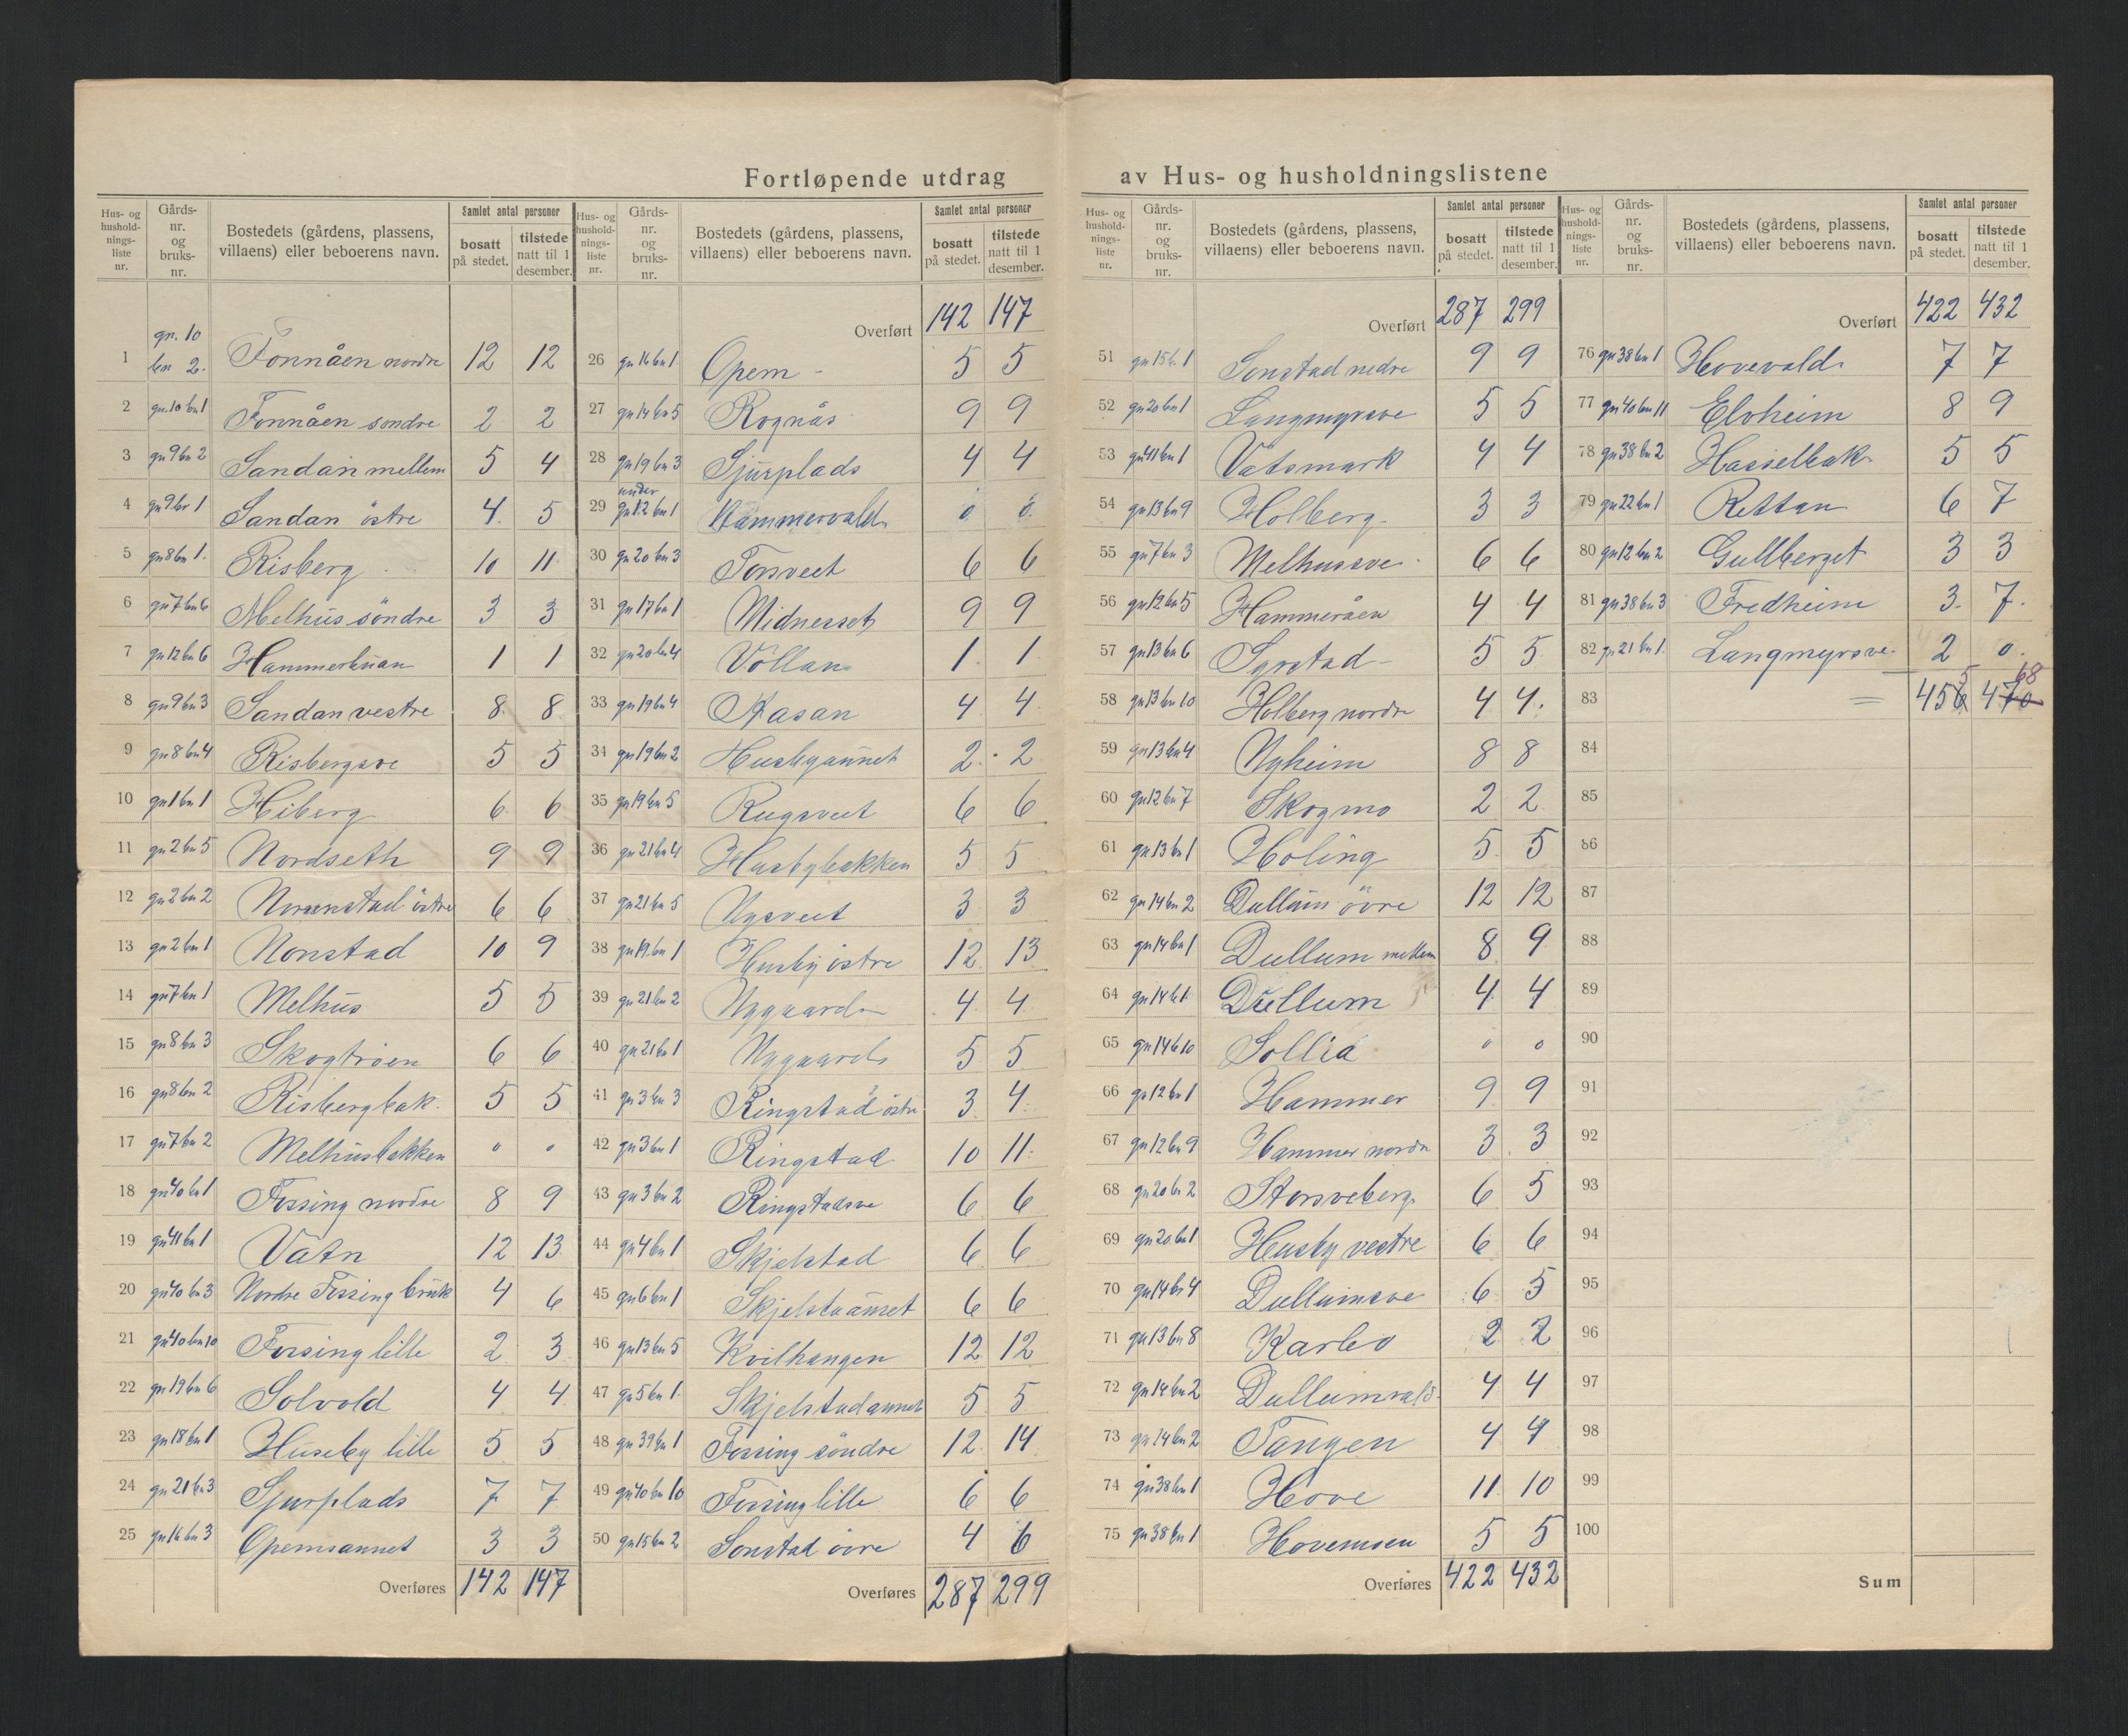 Fortløpende utdrag av Hus- og husholdningslistene
Hus- og hushold-nings-liste nr. | Gårds-nr. og bruks-nr. | Bostedets (gårdens, plassens, villaens) eller beboerens navn. | Samlet antal personer | bosatt på stedet. | tilstede natt til 1 desember.
1 gn. 10 bn 2. Fonnåen nordre 12 12
2 gn. 10 bn 1 Fonnåen søndre 2 2
3 gn 9 bn 2 Sandan mellem 5 4
4 gn 9 br 1 Sandan östre 4. 5
5 gn 8 bn 1. Risberg 10 11
6 gn 7 bn 6 Melhus söndre 3 3
7 gn 12 bn 6 Hammerhuan 1 1
8 gn 9 bn 3 Sandan vestre 8 8
9 gn 8 bn 4 Risbergsve 5 5
10 gn 1 bn 1 Hiberg 6 6
11 gn 2 bn 5 Nordseth 9 9
12 gn 2 bn 2 östre 6 6
13 gn 2 bn 1 Nonstad 10 9
14 gn 7 bn 1 Melhus 5 5
15 gn 8 bn 3 Skogtrøen 6 6
16 gn 8 bn 2 Risbergbak. 5 5
17 gn 7 bn 2 Melhusbakken " "
18 gn 40 bn 1 Fossing nordre 8 9
19 gn 41 bn 1 Vatn 12 13
20 gn 40 bn 3 Nordre Fossing bruk 4 6
21 gn 40 bn 10 Forsing lille 2 3
22 gn 19 bn 6 Solvold 4 4
23 gn 18 bn 1 Huseby lille 5 5
24 gn 21 bn 3 Sjurplads 7 7
25 gn 16 bn 3 Opemsaunet 3 3
Overføres 142 147
Hus- og hushold-nings-liste nr. | Gårds-nr. og bruks-nr. | Bostedets (gårdens, plassens, villaens) eller beboerens navn. | Samlet antal personer | bosatt på stedet. | tilstede natt til 1 desember.
Overført 142 147
26 gn 16 bn 1 Opem - 5 5
27 gn 14 bn 5 Rognås 9 9
28 gn 19 bn 3 Sjurplads 4 4
29 under gn 12 bn 1 Hammervald 0 0
30 gn 20 bn 3 Torsveet 6 6
31 gn 17 bn 1 Midnesset 9 9
32 gn 20 bn 4 Vollan 1 1
33 gn 19 bn 4 Aasan 4 4
34 gn 19 bn 2 Husbyaunet 2 2
35 gn 19 bn 5 Rugsveet 6 6
36 gn 21 bn 4 Husbybakken 5 5
37 gn 21 bn 5 Nysveet 3 3
38 gn 19 bn 1 Husby östre 12 13
39 gn 21 bn 2 Nygaard 4 4
40 gn 21 bn 1 Nygaard 5 5
41 gn 3 bn 3 Ringstad östre 3 4
42 gn 3 bn 1 Ringstad 10 11
43 gn 3 bn 2 Ringstadsve 6 6
44 gn 4 bn 1 Skjelstad 6 6
45 gn 6 bn 1 Skjelstaunet 6 6
46 gn 13 bn 5 Kvilhaugen 12 12
47 gn 5 bn 1 Skjelstadaunet 5 5
48 gn 39 bn 1 Forsing söndre 12 14
49 gn 40 bn 10 Forsing lille 6 6
50 gn 15 bn 2 Sonstad övre 4 6
Overføres 287 299
Hus- og hushold-nings-liste nr. | Gårds-nr. og bruks-nr. | Bostedets (gårdens, plassens, villaens) eller beboerens navn. | Samlet antal personer | bosatt på stedet. | tilstede natt til 1 desember.
Overført 287 299
51 gn 15 b. 1 Sonstad nedre 9 9
52 gn 20 bn 1 Langmyrsve 5 5
53 gn 41 bn 1 Vatsmark 4 4
54 gn 13 bn 9 Holberg 3 3
55 gn 7 bn 3 Melhussve 6 6
56 gn 12 bn 5 Hammeråen 4 4
57 gn 13 bn 6 Syrstad 5 5
58 gn 13 bn 10 Holberg nordre 4 4
59 gn 13 bn 4 Nyheim 8 8
60 gn 12 bn 7 Skogmo 2 2
61 gn 13 bn 1 Holing 5 5
62 gn 14 bn 2 Dullum övre 12 12
63 gn 14 bn 1 Dullum mellem 8 9
64 gn 14 b 1 Dullum 4 4
65 gn 14 b 10 Sollia " 0
66 gn 12 bn 1 Hammer 9 9
67 gn 12 bn 9 Hammer nordre 3 3
68 gn 20 bn 2 Storsveberg 6 5
69 gn 20 bn 1 Husby vestre 6 6
70 gn 14 bn 4 Dullumsve 6 5
71 gn 13 bn 8 Karlbo 2 2
72 gn 14 bn 2 Dullumvald 4 4
73 gn 14 bn 2 Tangen 4 4
74 gn 38 bn 1 Hove 11 10
75 gn 38 bn 1 Hovemoen 5 5
Overføres 422 432
Hus- og hushold-nings-liste nr. | Gårds-nr. og bruks-nr. | Bostedets (gårdens, plassens, villaens) eller beboerens navn. | Samlet antal personer | bosatt på stedet. | tilstede natt til 1 desember.
Overført 422 432
76 gn 38 bn 1 Hovevald 7 7
77 gn 40 bn 11 Elvheim 8 9
78 gn 38 bn 2 Hasselbak 5 5
79 gn 22 bn 1 Rettan 6 7
80 gn 12 bn 2 Gullberget 3 3
81 gn 38 bn 3 Fredheim 3. 7.
82 gn 21 bn 1. Langmyrsve. 2 0.
83 = 456 5 470 68
84
85
86
87
88
89
90
91
92
93
94
95
96
97
98
99
100
Sum